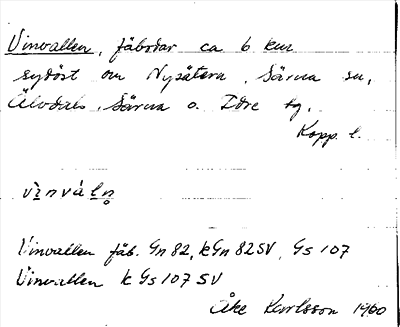 Vinvallen, fäbodar ca 6 km
sydöst om Nysätern, Särna sn,
Älvdals, Särna o. Idre tg.
Kopp. l.
vìnvàln̥
Vinvallen fäb. Gn 82, kGn 82SV, Gs 107
Vinvallen k Gs 107 SV
Åke Karlsson 1960